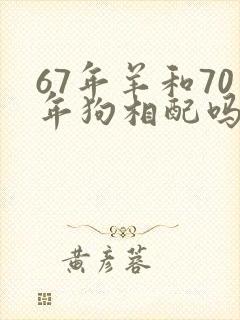 67年羊和70
年狗相配吗
黄彦蓉